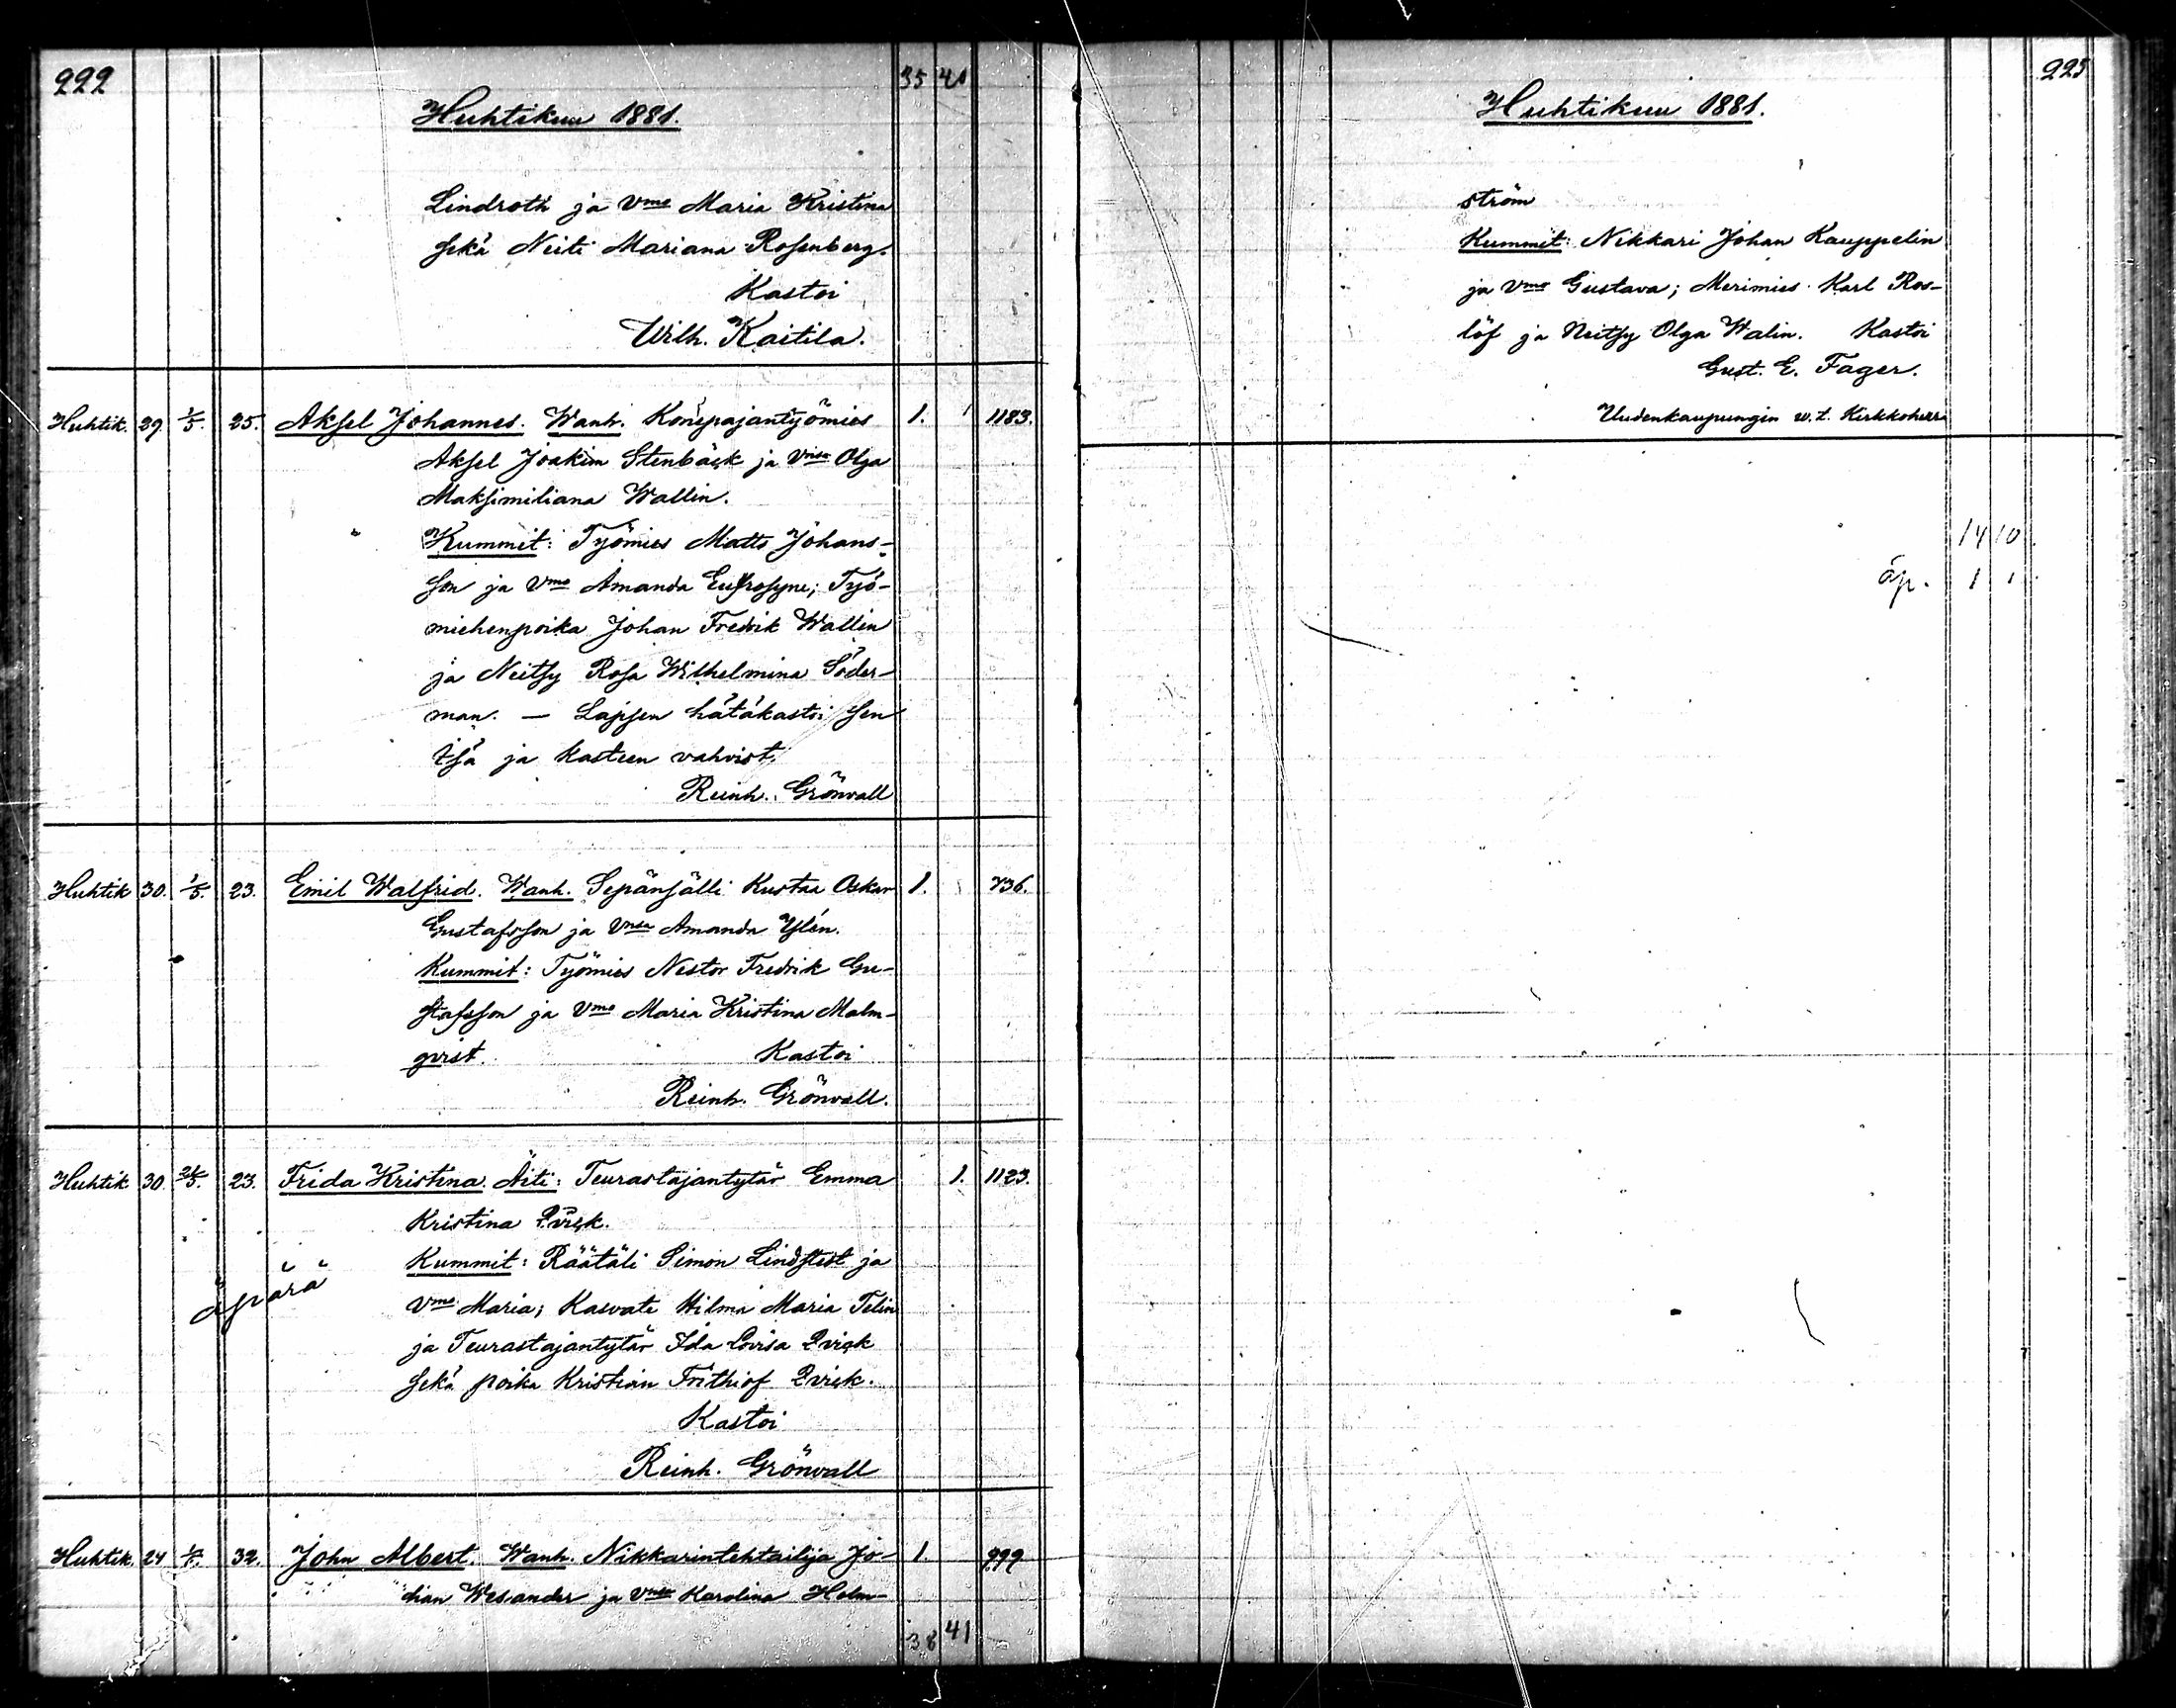 222
35 40
Huhtikuu 1881.
Lindroth ja Vmo Maria Kristina
sekä Neiti Mariana Rosenberg.
Kastoi
Wilh. Kaitila.
Huhtik. 29 1/5. 25. Aksel Johannes. Wanh. Konepajantyömies 1. 1183.
Aksel Joakim Stenbäck ja Vnsa Olga
Maksimiliana Wallin.
Kummit: Työmies Matts Johans-
son ja Vmo Amanda Eufrosyne; Työ-
miehenpoika Johan Fredrik Wallin
ja Neitsy Rosa Wilhelmina Söder-
man. — Lapsen hätäkastoi sen
isä ja kasteen vahvist.
Reinh. Grönvall
Huhtik 30. 1/5. 23. Emil Walfrid. Wanh. Sepänsälli Kustaa Oskar 1. 736.
Gustafsson ja Vnsa Amanda Ylén.
Kummit: Työmies Nestor Fredrik Gu-
stafsson ja Vmo Maria Kristina Malm-
qvist. Kastoi
Reinh. Grönvall.
Huhtik 30. 24/5. 23. Frida Kristina. Äiti: Teurastajantytär Emma 1. 1123.
Kristina Qvick.
Kummit: Räätäli Simon Lindstedt ja
äpärä
Vmo Maria; Kasvate Hilma Maria Telin
ja Teurastajantytär Ida Lovisa Qvick
sekä poika Kristian Frithiof Qvick.
Kastoi
Reinh. Grönvall
Huhtik. 24 32. John Albert. Wanh. Nikkarintehtailija Jo- 1. 999
han Wesander ja Vnsa Karolina Holm-
38 41
223
Huhtikuu 1881.
ström
Kummit: Nikkari Johan Kauppelin
ja Vmo Gustava; Merimies Karl Ros-
löf ja Neitsy Olga Walin. Kastoi
Gust. E. Fager.
Uudenkaupungin w. t. Kirkkoherra
14 10
äp. 1 1